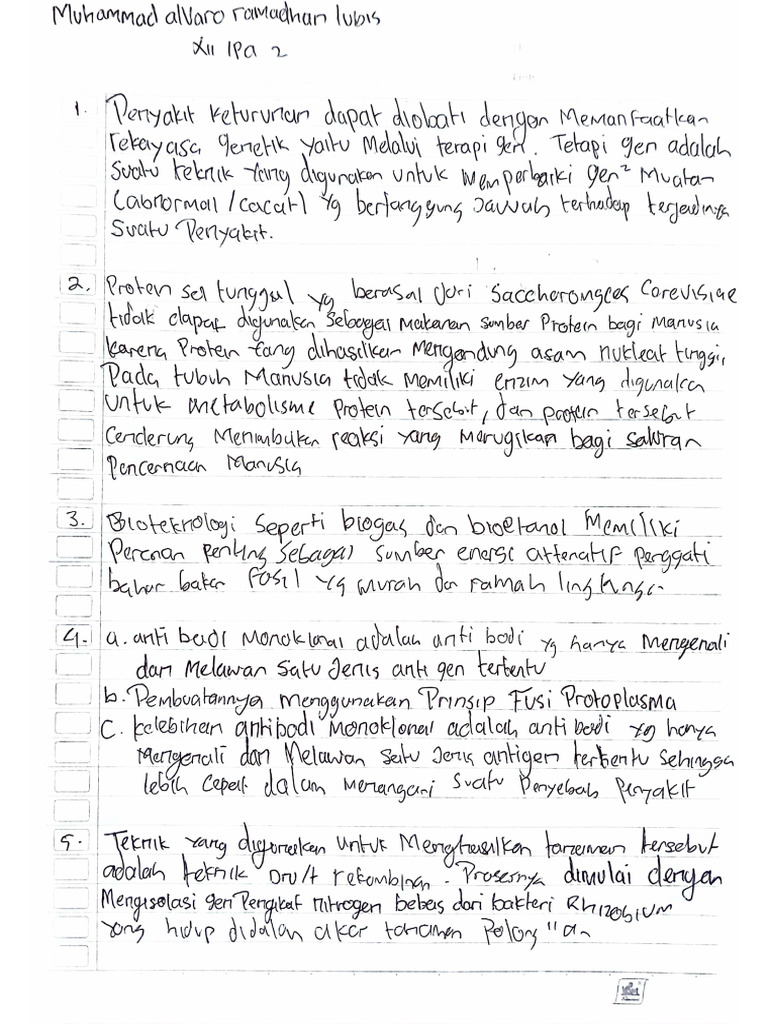 Muhammad alvaro ramadhan lubis
XII IPa 2
1. Penyakit keturunan dapat diobati dengan Memanfaatkan
rekayasa genetik yaitu Melalui terapi gen. Tetapi gen adalah
Suatu teknik yang digunakan untuk memperbaiki gen² Muatan
(abnormal/cacat) yg bertanggung Jawab terhadap terjadinya
Suatu Penyakit.
2. Protein sel tunggul yg berasal dari Saccharomyces Corevisiae
tidak dapat digunakan sebagai Makanan sumber Protein bagi Manusia
karena Protein yang dihasilkan Mengandung asam nukleat tinggi,
Pada tubuh Manusia tidak Memiliki enzim yang digunakan
untuk metabolisme Protein tersebut, dan protein tersebut
Cenderung Menimbulkan reaksi yang Merugikan bagi saluran
Pencernaan Manusia
3. Bioteknologi Seperti biogas dan bioetanol Memiliki
Peranan Penting Sebagai Sumber energi alternatif Penggati
bahan bakar Fosil yg murah dan ramah lingkungan
4. a. anti bodi Monoklonal adalah anti bodi yg hanya Mengenali
dan Melawan Satu Jenis anti gen tertentu
b. Pembuatannya Menggunakan Prinsip Fusi Protoplasma
C. kelebihan antibodi Monoklonal adalah anti bodi yg hanya
Mengenali dan Melawan Satu Jenis antigen tertentu Sehingga
lebih Cepat dalam Menangani Suatu Penyebab Penyakit
5. Teknik yang digunakan untuk Menghasilkan tanaman tersebut
adalah teknik DNA rekombinan. Prosesnya dimulai dengan
Mengisolasi gen Pengikat nitrogen bebas dari bakteri Rhizobium
yang hidup didalam akar tanaman Polong"an